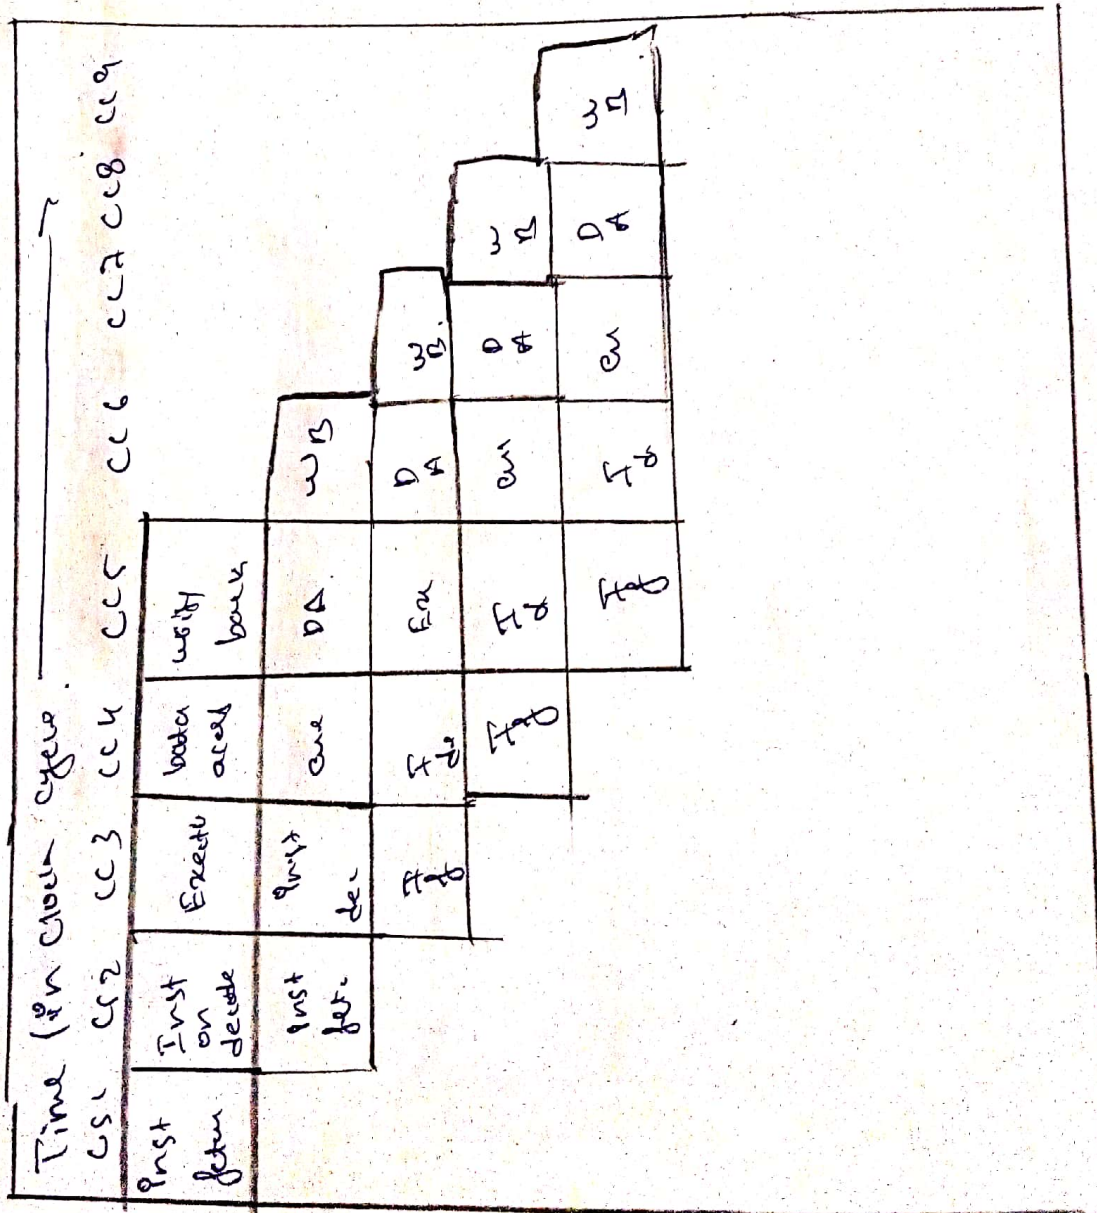 Time (in clock cycle
CC1 CC2 CC3 CC4 CC5 CC6 CC7 CC8 CC9
Inst fetch Inst on decode Execute data acces write back
Inst fet. Inst dec exe DA WB
If Id Exe DA WB.
If Id exe DA WB
If Id exe DA WB